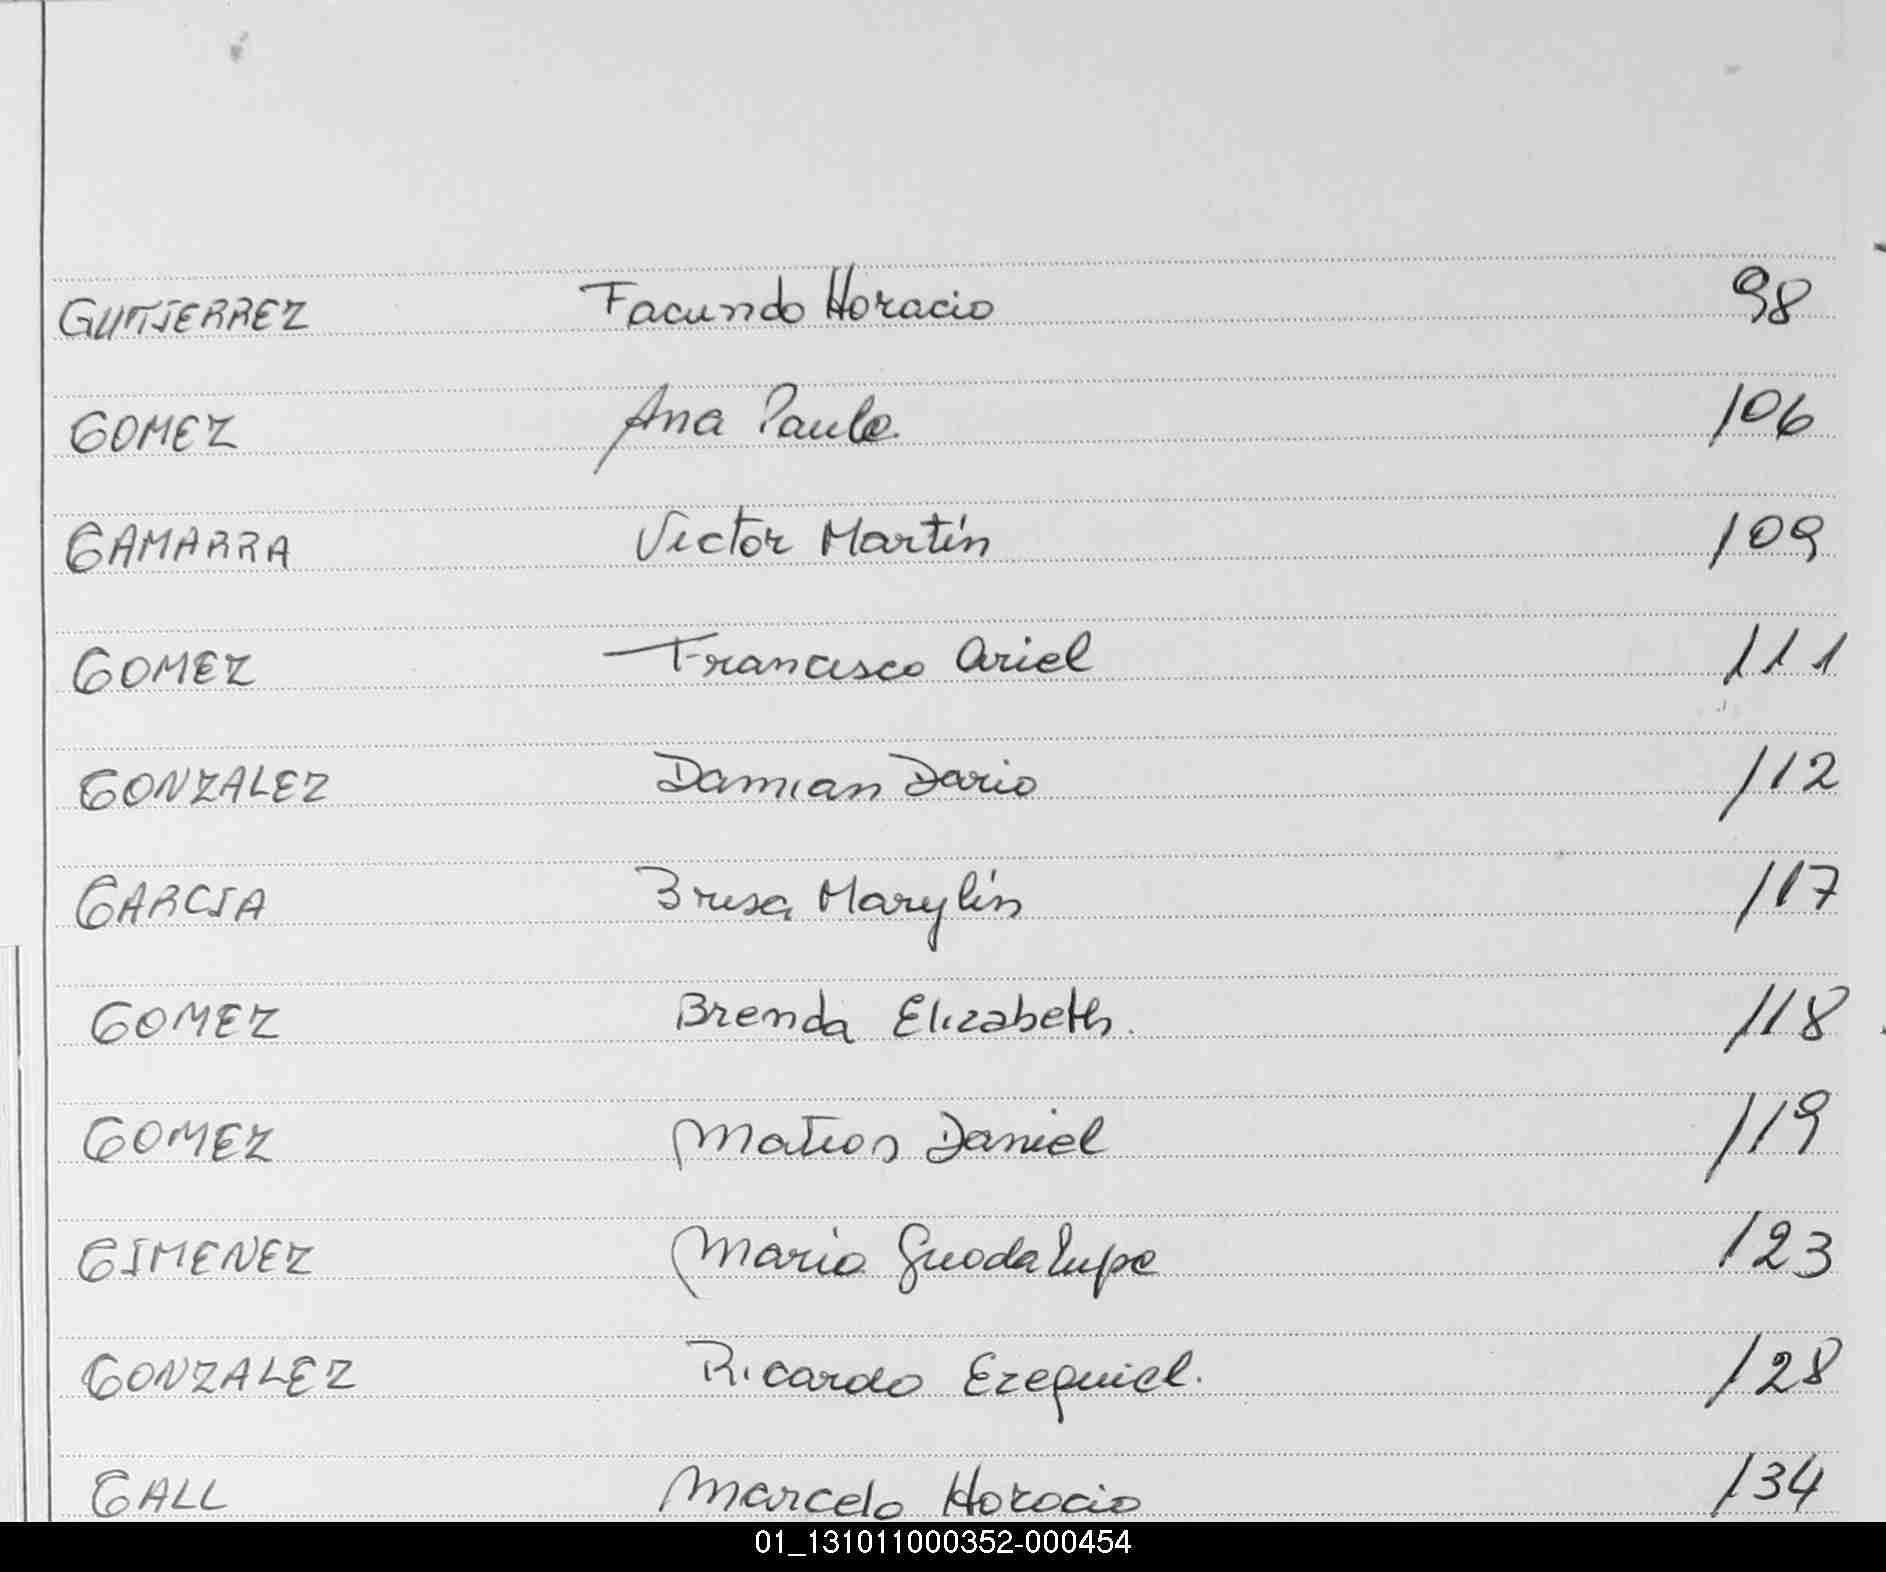 GUTIERREZ Facundo Horacio 98
GOMEZ Ana Paula 106
GAMARRA Victor Martín 109
GOMEZ Francisco Ariel 111
GONZALEZ Damian Dario 112
GARCIA Brisa Marylín 117
GOMEZ Brenda Elizabeth. 118
GOMEZ Matias Daniel 119
GIMENEZ Maria Guadalupe 123
GONZALEZ Ricardo Ezequiel. 128
GALL Marcelo Horacio 134
01_131011000352-000454